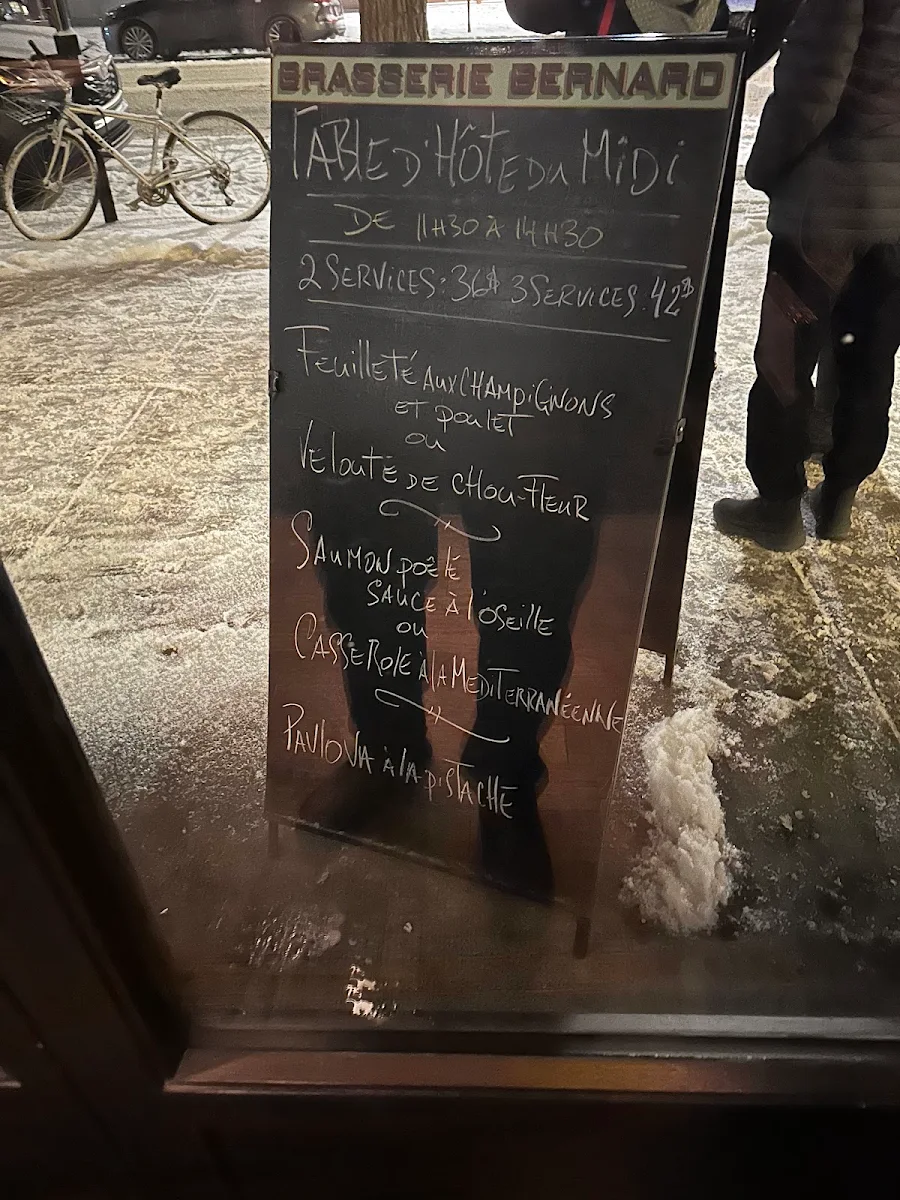 BRASSERIE BERNARD
TABLE D'HÔTE DU MIDI
DE 11H30 À 14H30
2 SERVICES: 36$ 3 SERVICES: 42$
FEUILLETÉ AUX CHAMPIGNONS
ET POULET
OU
VELOUTÉ DE CHOU-FLEUR
SAUMON POÊLÉ
SAUCE À l'OSEILLE
OU
CASSEROLE À lA MEDITERRANÉENNE
PAVLOVA À lA PISTACHE